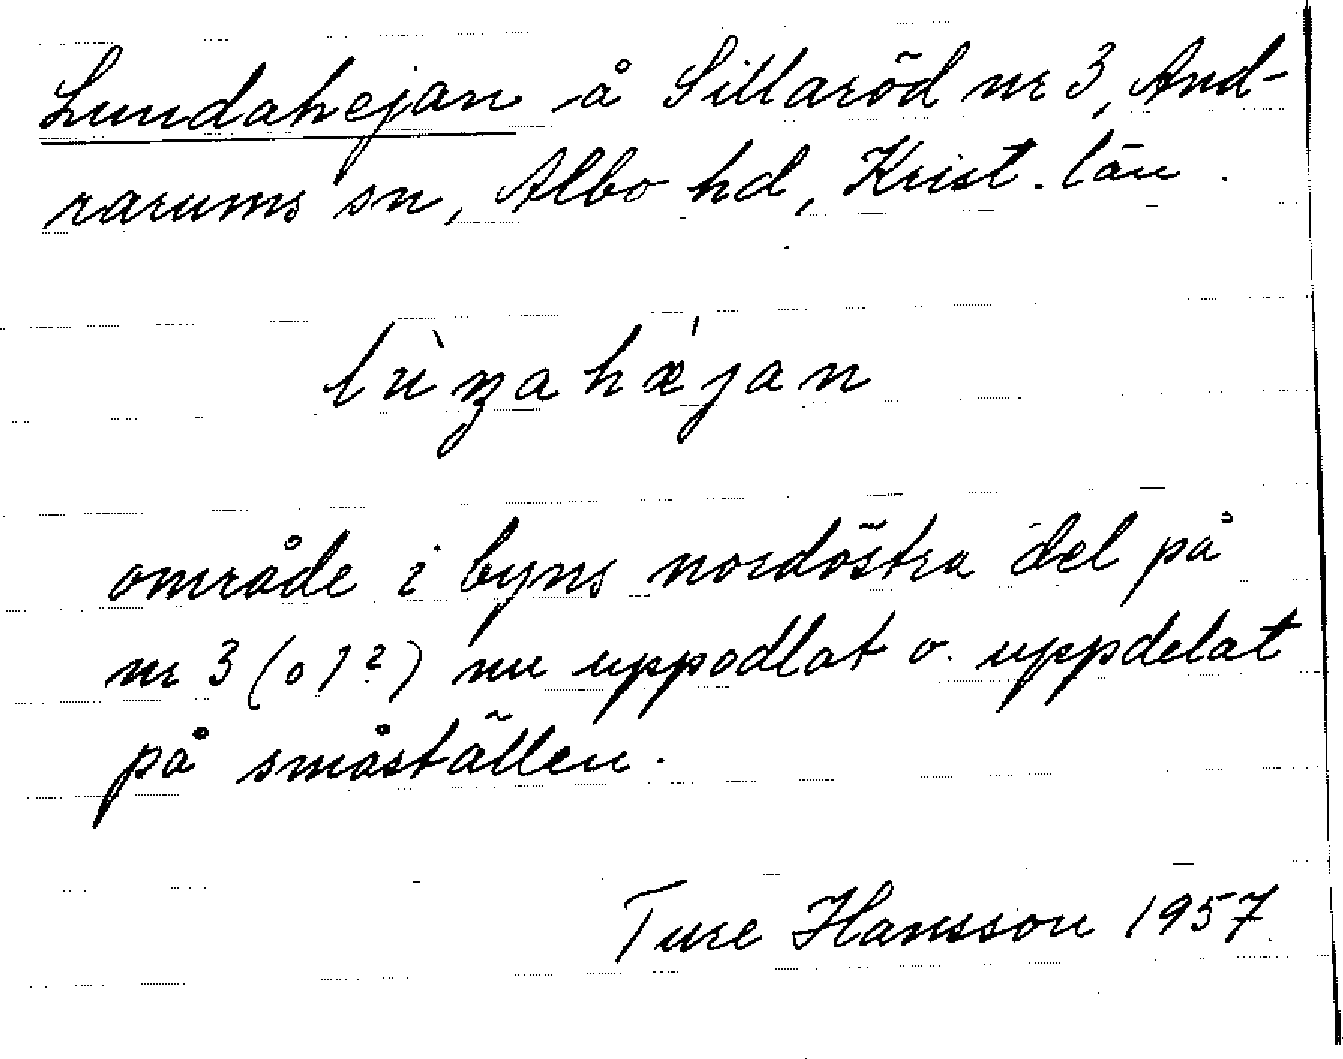 Lundahejan å Sillaröd nr 3, And-
rarums sn, Albo hd, Krist. län.
område i byns nordöstra del på
nr 3 (o 1?) nu uppodlat o. uppdelat
på småställen.
Ture Hansson 1957